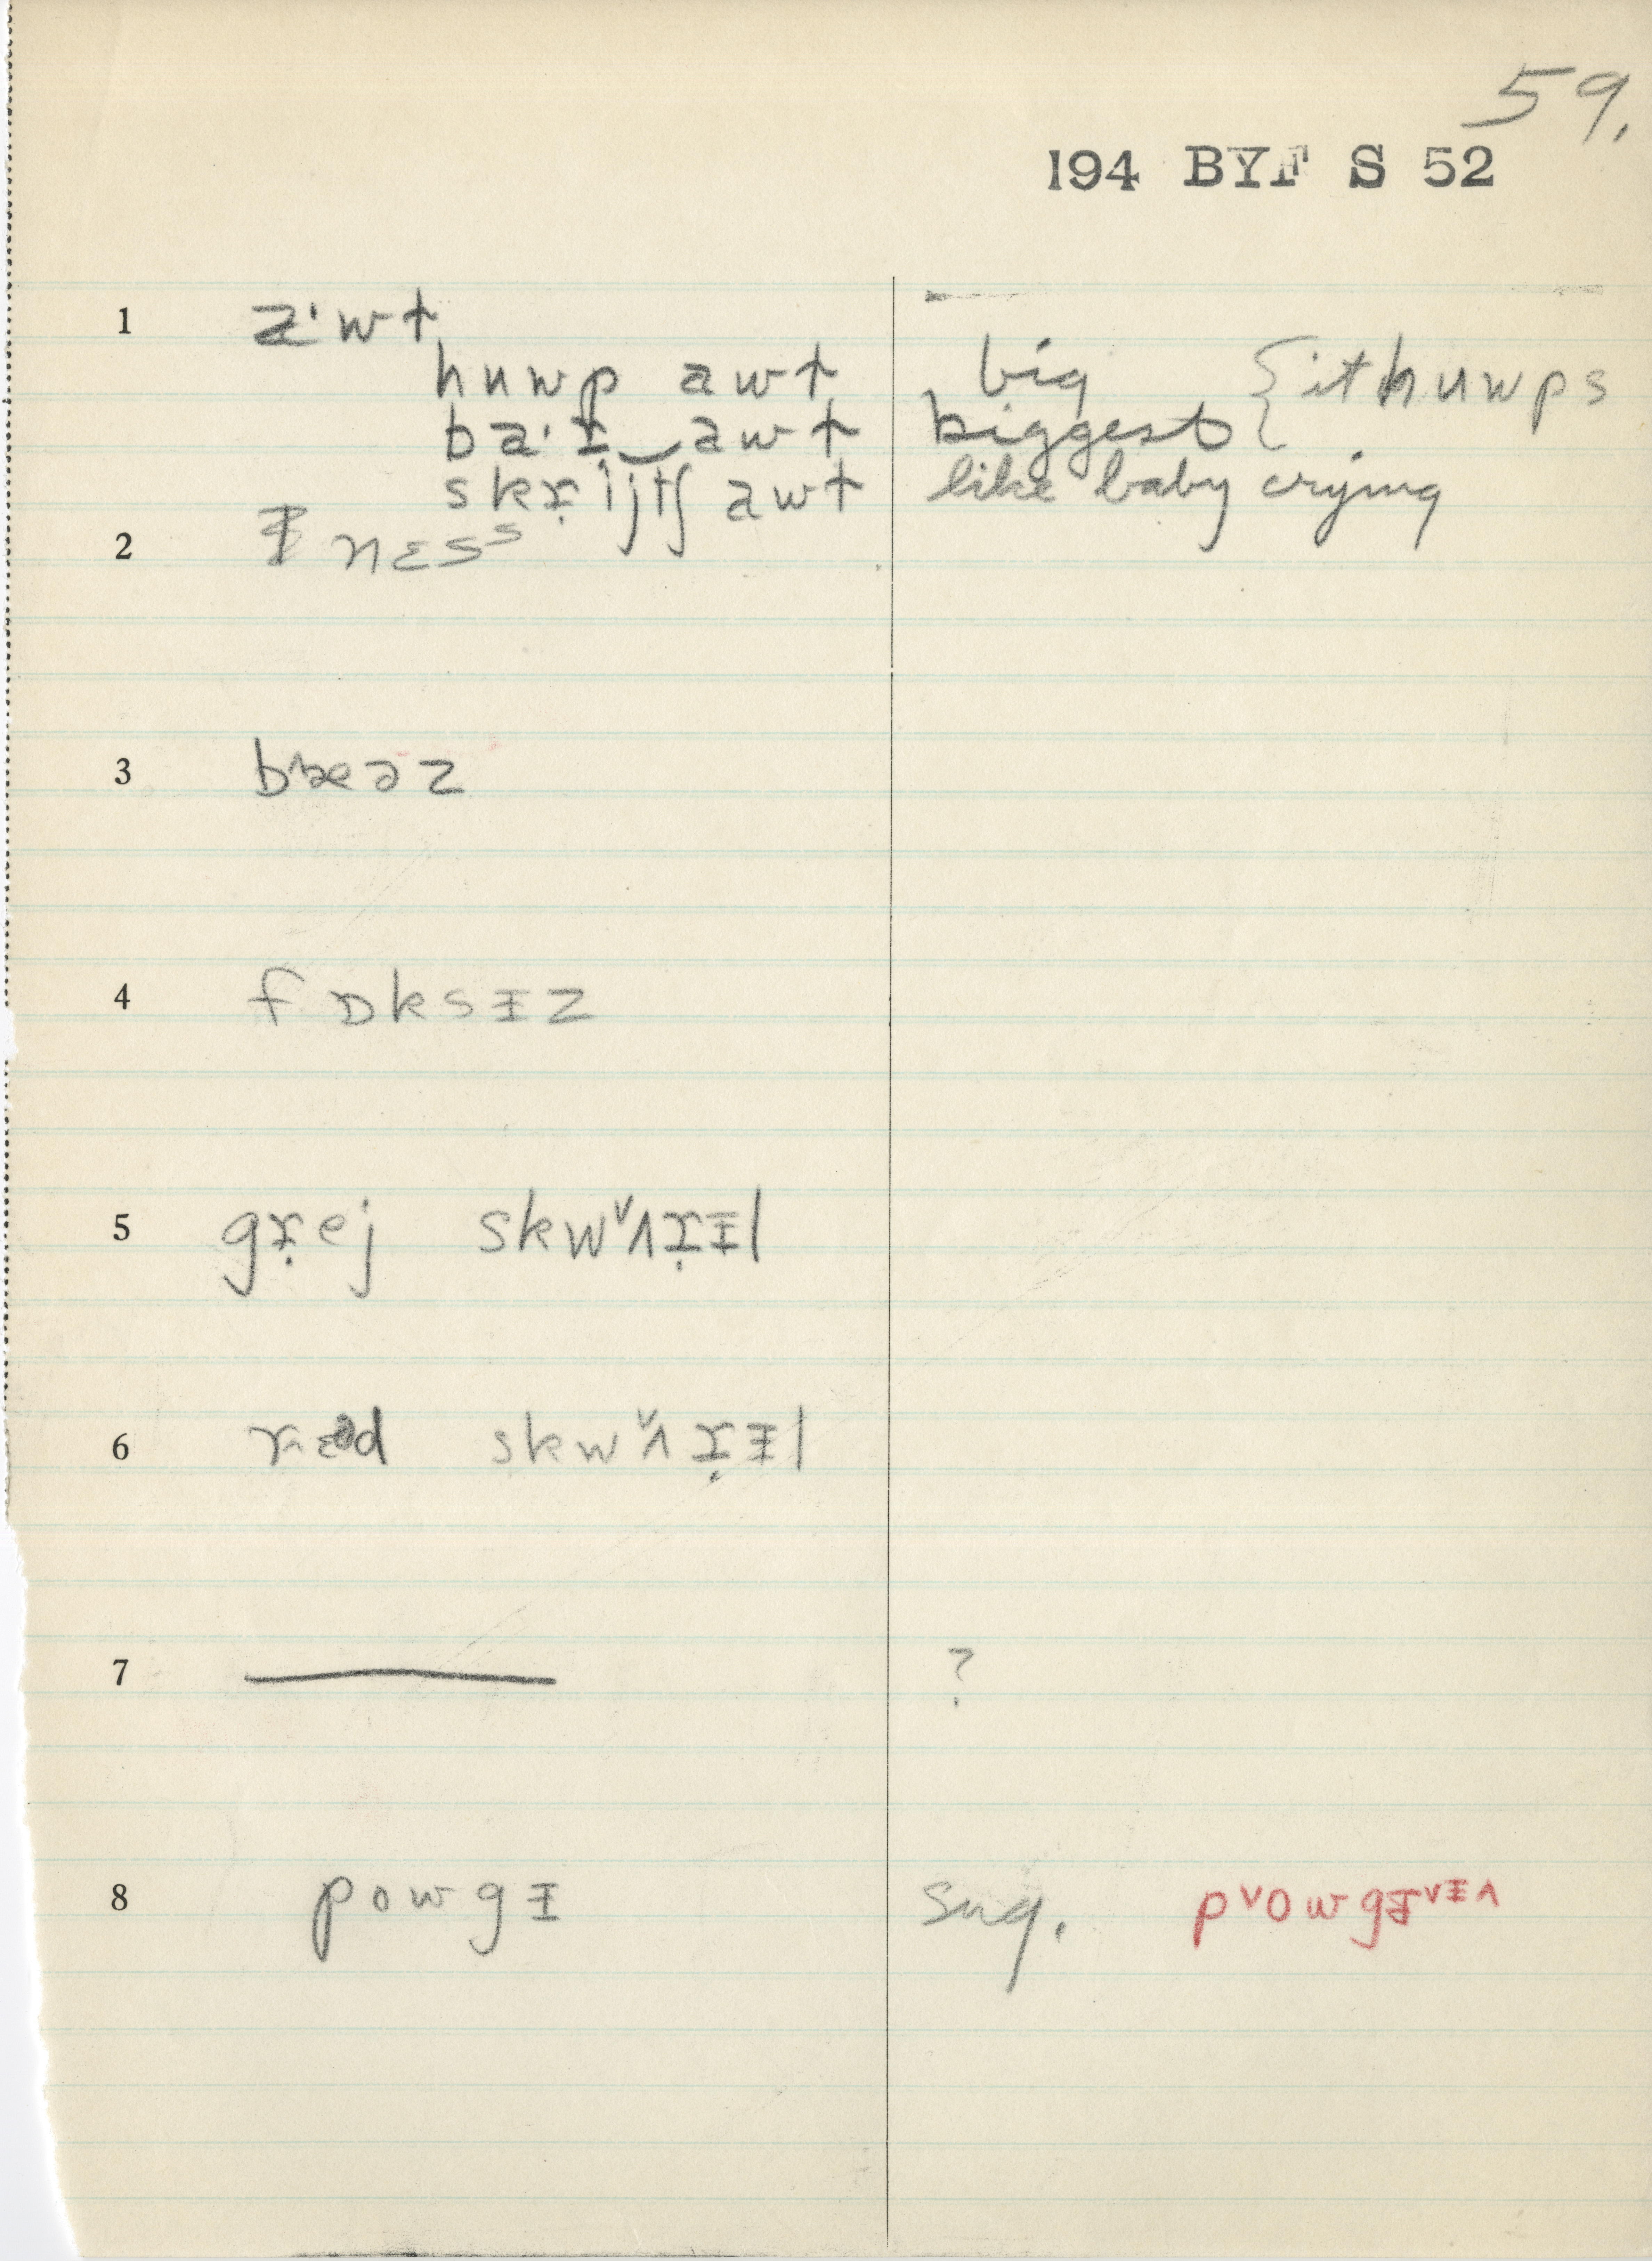 59.
194 BYF S 52
1 aˑwt
huwp awt big {it huwps
baˑɹ̣‿awt biggest
skɹ̣ijtʃ awt like baby crying
2 ᵻ nɛsˢ
3 bæəz
4 fɒksᵻz
5 gɹ̣ej skwˇʌɹ̣ᵻl
6 rɛəd skwˇʌɹ̣ᵻl
7 — ?
8 powgᵻ sug. pˇowgᵻˇᵻ^